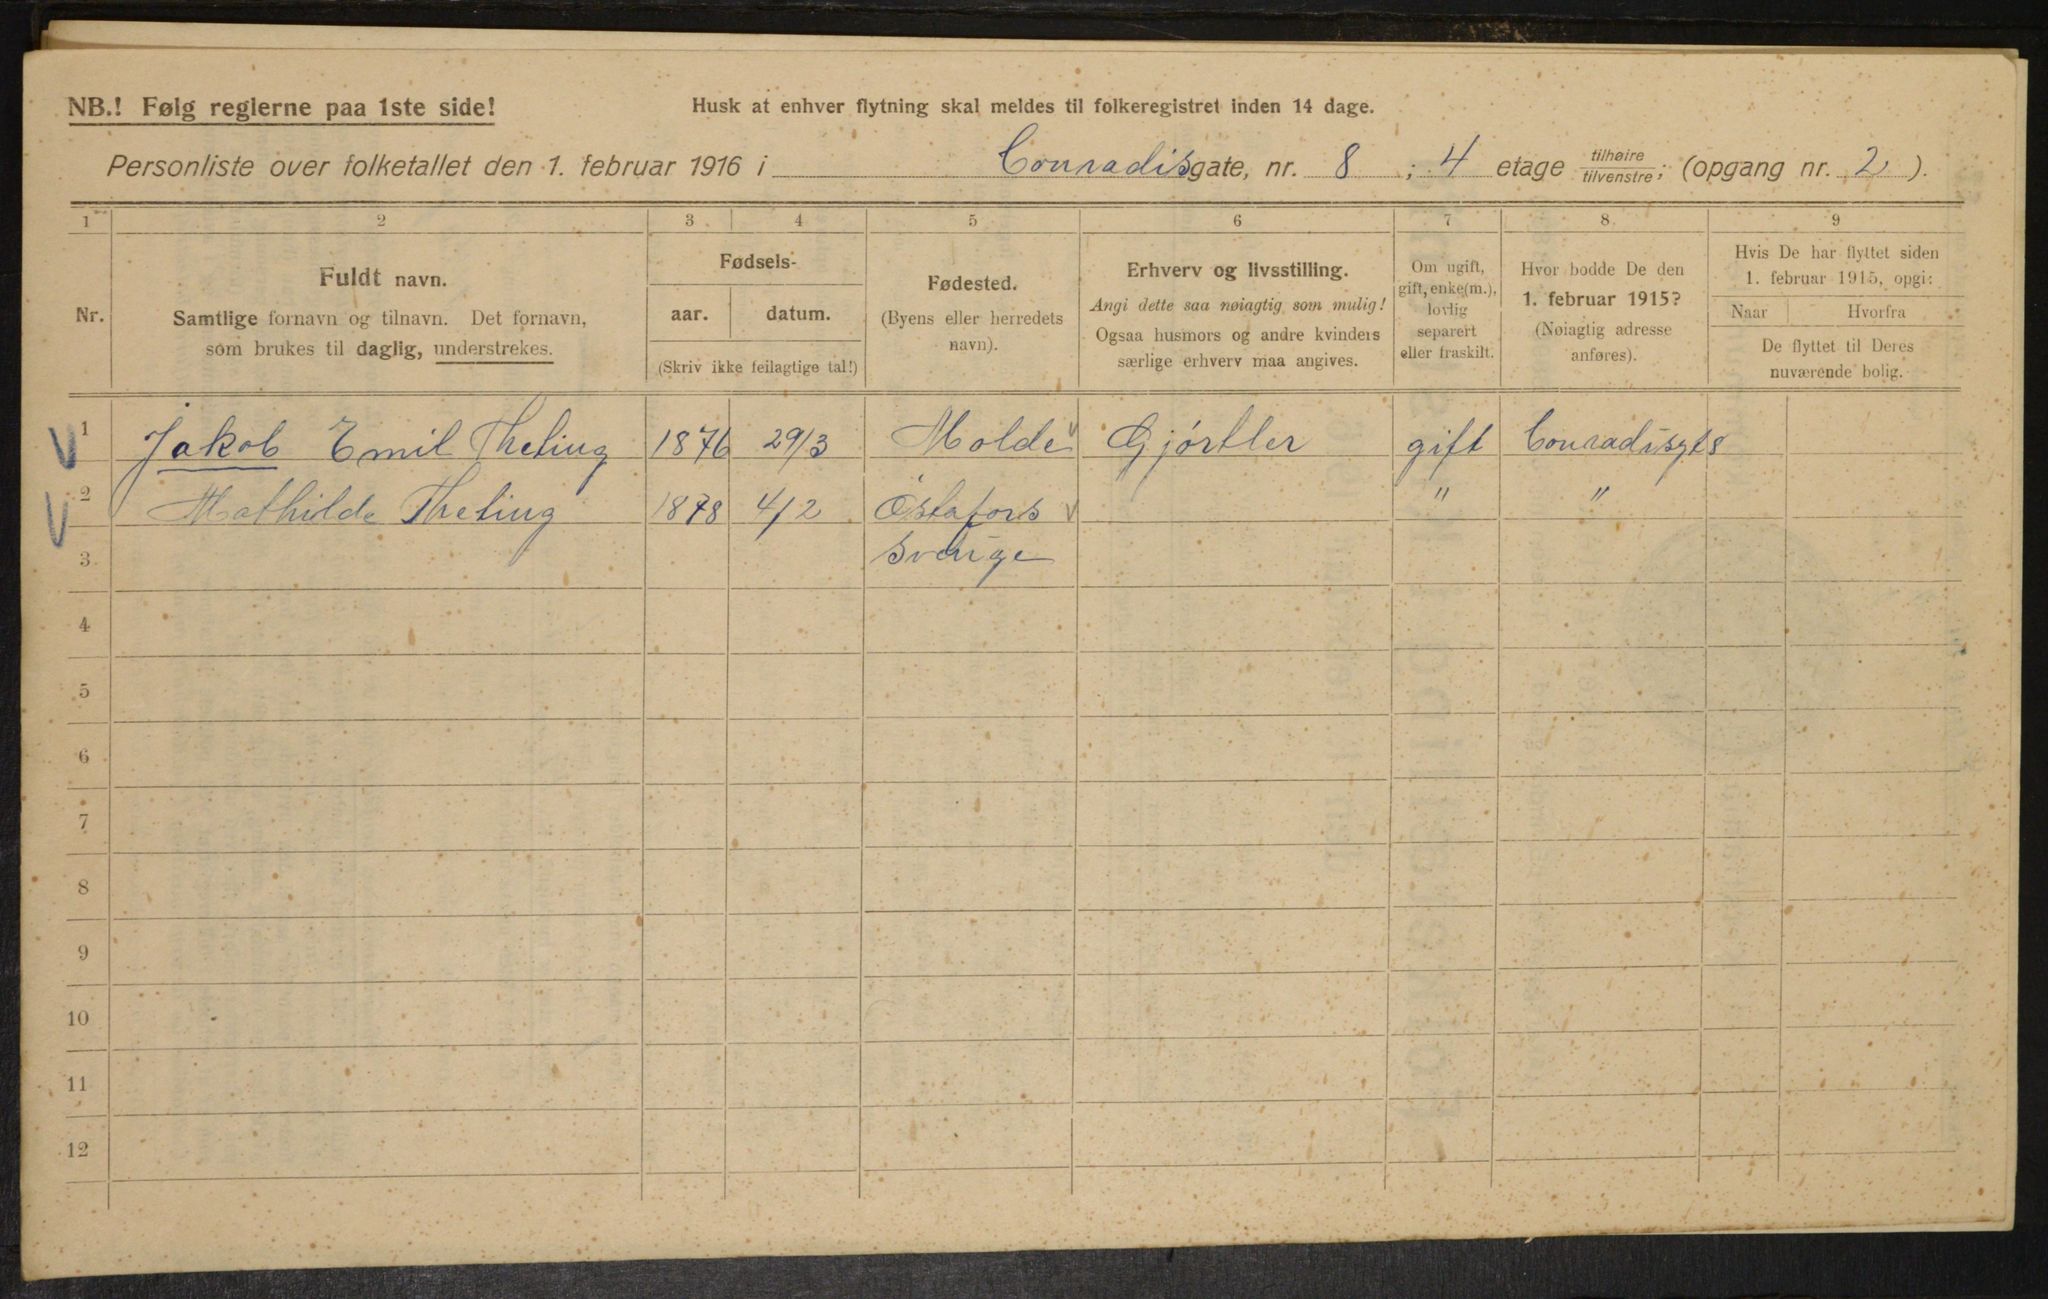 NB.! Følg reglerne paa 1ste side! Husk at enhver flytning skal meldes til folkeregistret inden 14 dage.
Personliste over folketallet den 1. februar 1916 i Conradisgate, nr. 8 ; 4 etage tilhøire/tilvenstre; (opgang nr. 2 ).
1 2 3 4 5 6 7 8. 9
Nr.
Fuldt navn.
Samtlige fornavn og tilnavn. Det fornavn,
som brukes til daglig, understrekes.
Fødsels-
aar. datum.
(Skriv ikke feilagtige tal!)
Fødested.
(Byens eller herredets
navn).
Erhverv og livsstilling.
Angi dette saa nøiagtig som mulig!
Ogsaa husmors og andre kvinders
særlige erhverv maa angives.
Om ugift,
gift, enke(m.),
lovlig
separert
eller fraskilt.
Hvor bodde De den
1. februar 1915?
(Nøiagtig adresse
anføres).
Hvis De har flyttet siden
1. februar 1915, opgi:
Naar Hvorfra
De flyttet til Deres
nuværende bolig.
1 Jakob Emil Theting 1876 29/3 Molde Gjørtler gift Conradisgt 8
2 Mathilde Theting 1878 4/2 Östafors " "
3 Sverige
4
5
6
7
8
9
10
11
12